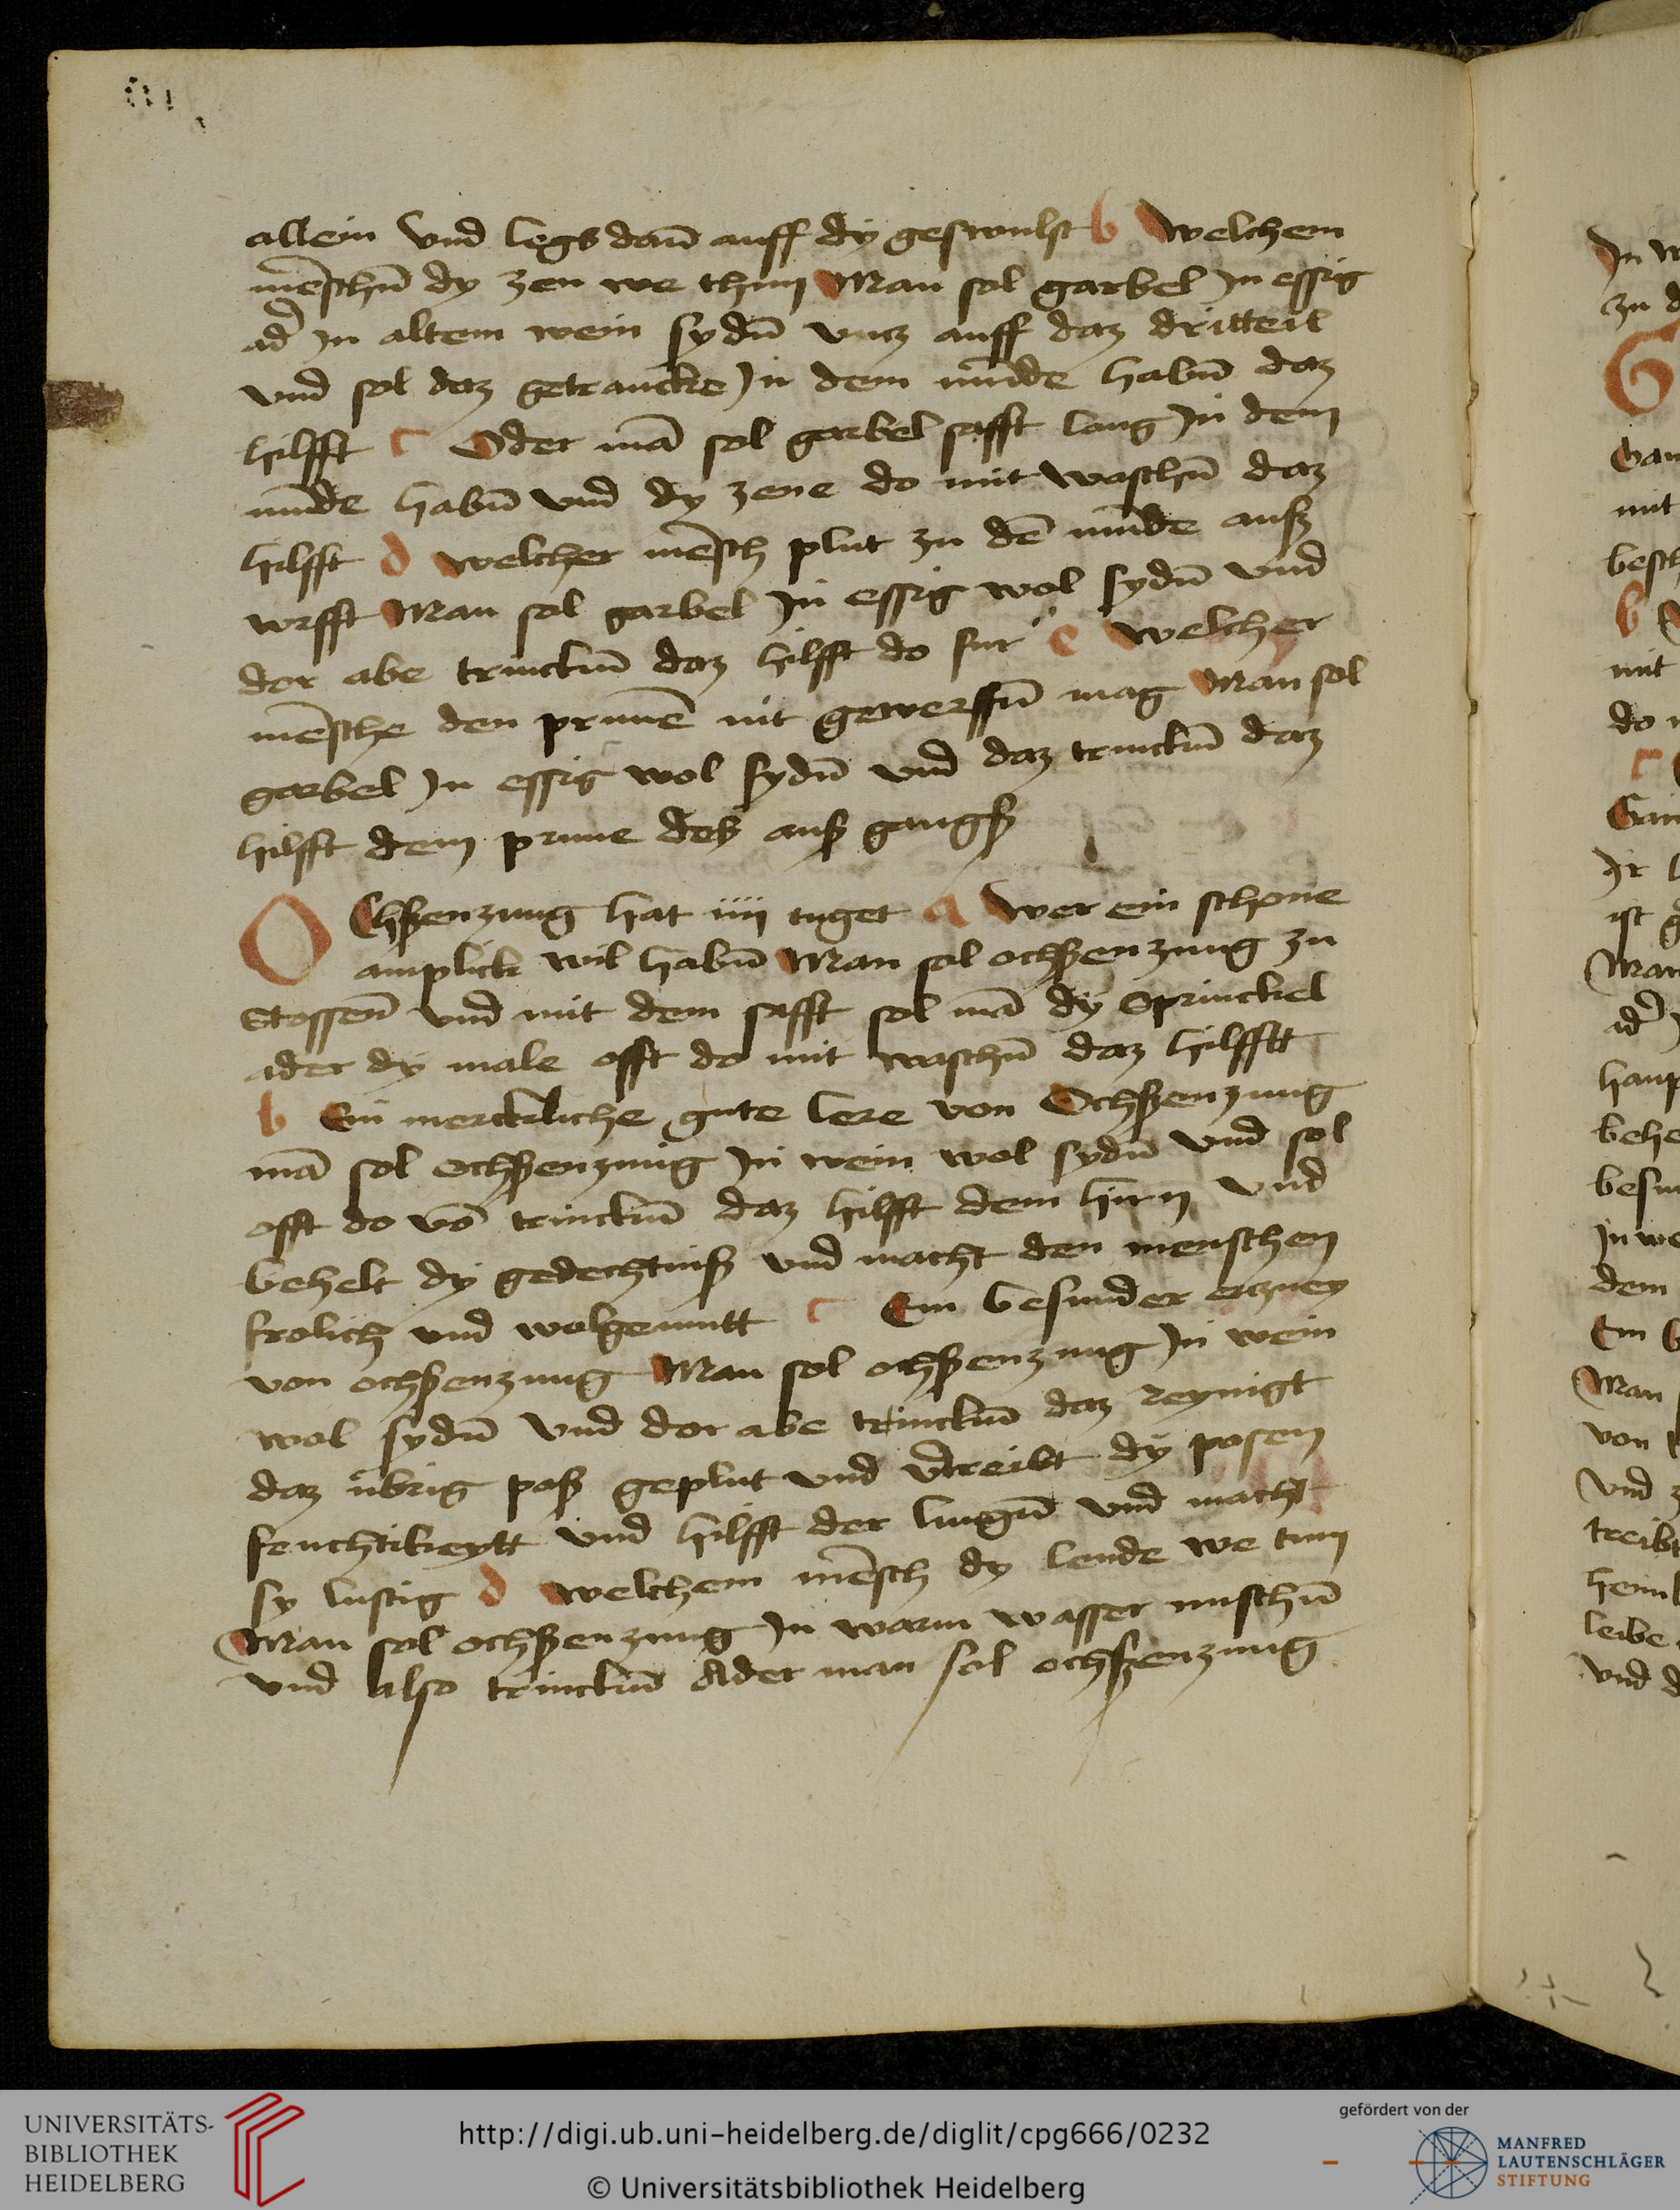 allein vnd legs dañ auff dÿ geswulst b Welchem
mēschn̄ dy zen we thun Man sol garbel in essig
ad̾ in altem wein sydn̄ vncz auff daz dritteil
vnd sol daz getrancke in dem mūde habn̄ daz
hilfft c Oder mā sol garbel safft lang in dem
mūde habn̄ vnd dy zene do mit waschn̄ daz
hilfft d Welcher mēsch plut zu dē mūde auß
wrfft Man sol garbel in essig wol sydn̄ vnd
dor abe trinckn̄ daz hilfft do fur e Welcher
mēsche den prunē nit gewerffn̄ mag Man sol
garbel in essig wol sydn̄ vnd daz trinckn̄ daz
hilfft dem prune deß auß gangß
OChßenzung hat iiij tuget a Wer ein schone
amplick wil habn̄ Man sol ochßenzung zu
Stossen̄ vnd mit dem safft sol mā dÿ Sprinckel
ader dÿ male offt do mit waschn̄ daz hilfftt
b Ein merckliche gute lere von Ochßenzung
mā sol ochßenzung in wein wol sydn̄ vnd sol
offt do vō trinckn̄ daz hilfft dem hirn vnd
behelt dÿ gedechtniß vnd macht den menschen
frolich vnd wolgemutt c Ein besunder erzney
von ochßenzung Man sol ochßenzung in wein
wol sydn̄ vnd dor abe trinckn̄ daz reynigt
daz übrig poß geplut vnd v̾treibt dÿ posen
feuchtikeytt vnd hilfft der lungn̄ vnd macht
sy lustig d Welchem mēsch dy lende we tun
Man sol ochßenzung in warm wasser muschn̄
vnd also trinckn̄ Ader man sol ochßenzung
In
zu
G
mit
b
mit
do
c
Ir
ist
Man
ad̾
dem
Ein
Man
von
vnd
leibe
vnd
UNIVERSITÄTS-
BIBLIOTHEK
HEIDELBERG
http://digi.ub.uni-heidelberg.de/diglit/cpg666/0232
© Universitätsbibliothek Heidelberg
gefördert von der
MANFRED
LAUTENSCHLÄGER
STIFTUNG